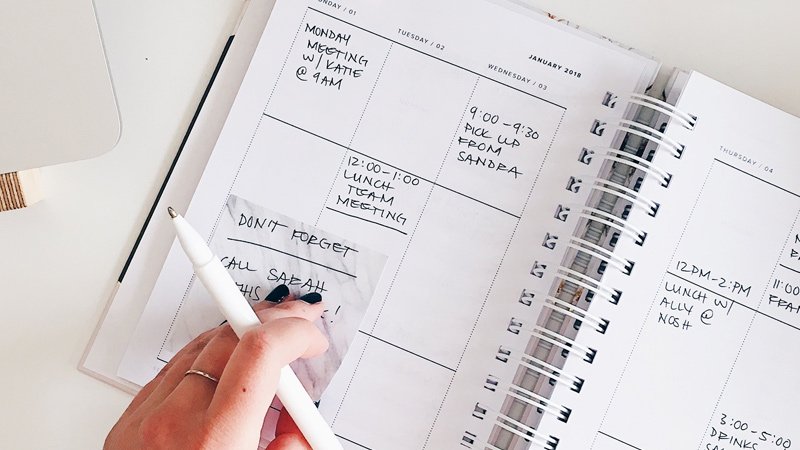 MONDAY / 01
MONDAY
MEETING
W/ KATIE
@ 9AM
TUESDAY / 02
12:00-1:00
LUNCH
TEAM
MEETING
JANUARY 2018
WEDNESDAY / 03
9:00-9:30
PICK UP
FROM
SANDRA
DON'T FORGET
CALL SARAH
THIS
THURSDAY / 04
12PM-2PM
LUNCH W/
ALLY @
NOSH
3:00-5:00
DRINKS
11:00